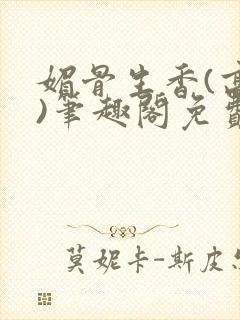 媚骨生香(
)笔趣阁免
莫妮卡-斯皮